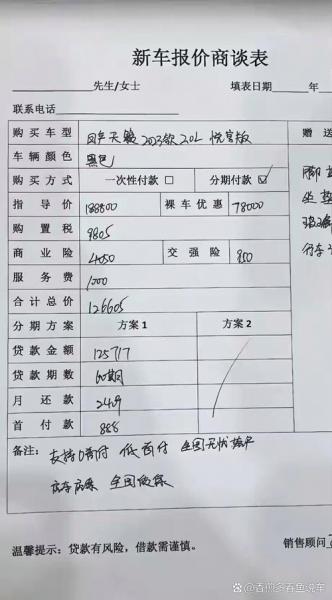 新车报价商谈表
先生/女士 填表日期 年
联系电话
购买车型 日产天籁 2023款 2.0L 悦享版 赠送
车辆颜色 黑色 脚垫
购买方式 一次性付款 □ 分期付款 ☑ 坐垫
指导价 188800 裸车优惠 78000
购置税 9805 行车
商业险 4050 交强险 950
服务费 1000
合计总价 126605
分期方案 方案1 方案2
贷款金额 125717
贷款期数 60期
月还款 2409
首付款 888
备注: 支持0首付 低首付 全国无忧
全国
温馨提示:贷款有风险,借款需谨慎。 销售顾问
@香煎多春鱼说车